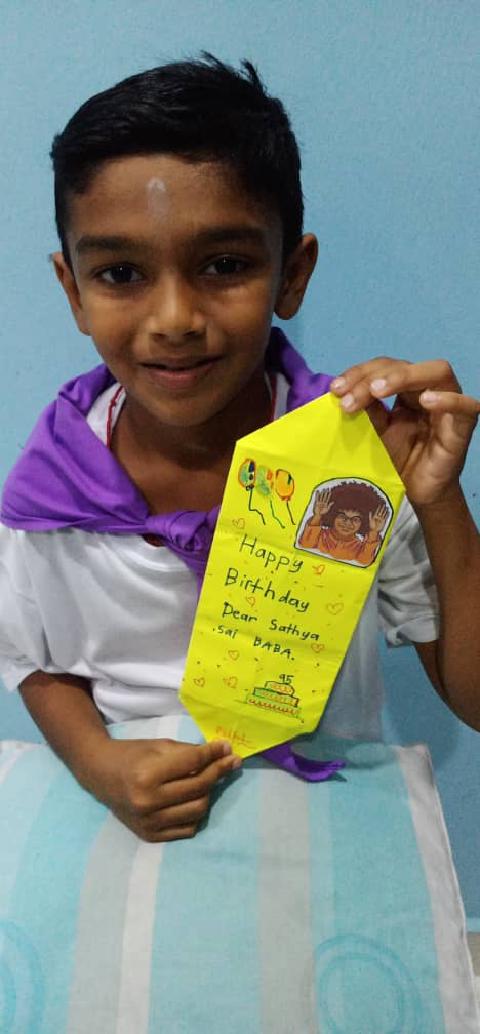 Happy
Birthday
Dear Sathya
sai BABA.
95